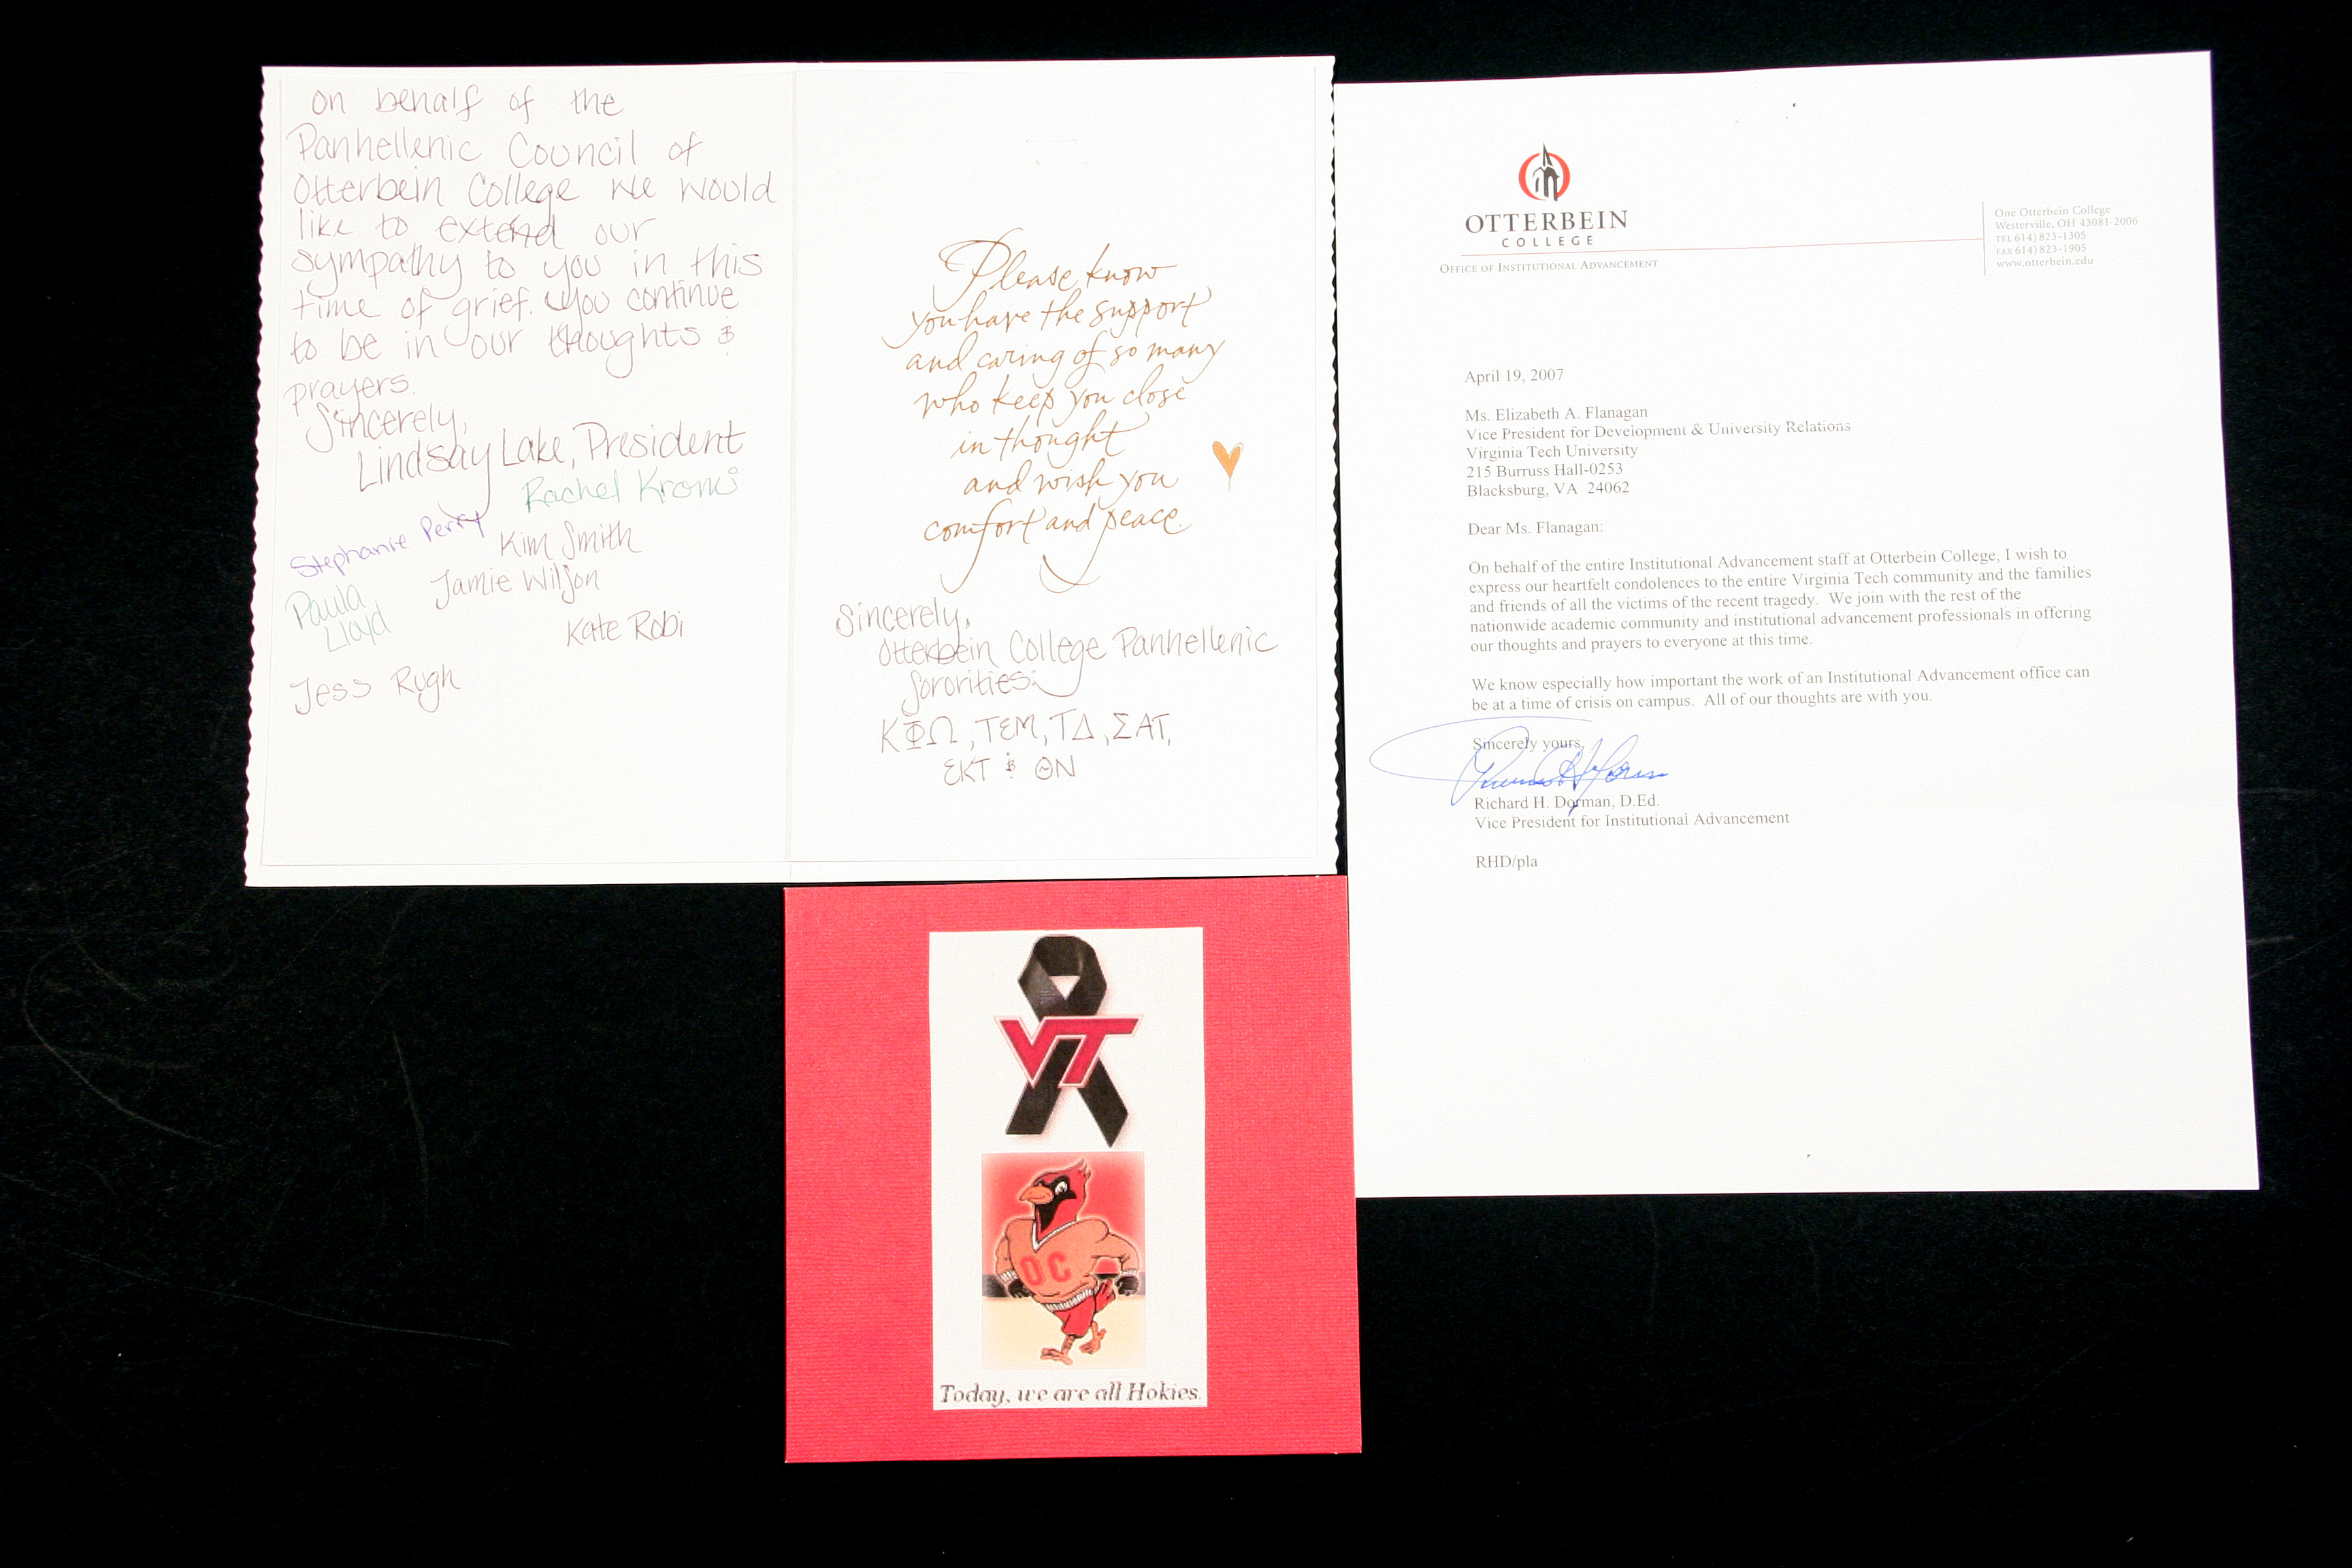 on behalf of the
Panhellenic Council of
Otterbein College we would
like to extend our
sympathy to you in this
time of grief. You continue
to be in our thoughts &
prayers.
Sincerely,
Lindsay Lake, President
Rachel
Stephanie Perry
Kim Smith
Jamie Wilson
Paula
Lloyd
Kate Robi
Jess Rugh
Please know
you have the support
and caring of so many
who keep you close
in thought
and wish you
comfort and peace.
Sincerely,
Otterbein College Panhellenic
Sororities:
ΚΦΩ, ΤΕΜ, ΤΔ, ΣΑΤ,
ΕΚΤ & ΘΝ
OTTERBEIN
COLLEGE
OFFICE OF INSTITUTIONAL ADVANCEMENT
One Otterbein College
Westerville, OH 43081-2006
TEL 614) 823-1305
FAX 614) 823-1905
www.otterbein.edu
April 19, 2007
Ms. Elizabeth A. Flanagan
Vice President for Development & University Relations
Virginia Tech University
215 Burruss Hall-0253
Blacksburg, VA 24062
Dear Ms. Flanagan:
On behalf of the entire Institutional Advancement staff at Otterbein College, I wish to
express our heartfelt condolences to the entire Virginia Tech community and the families
and friends of all the victims of the recent tragedy. We join with the rest of the
nationwide academic community and institutional advancement professionals in offering
our thoughts and prayers to everyone at this time.
We know especially how important the work of an Institutional Advancement office can
be at a time of crisis on campus. All of our thoughts are with you.
Sincerely yours,
Richard H. Dorman, D.Ed.
Vice President for Institutional Advancement
RHD/pla
VT
OC
Today, we are all Hokies.